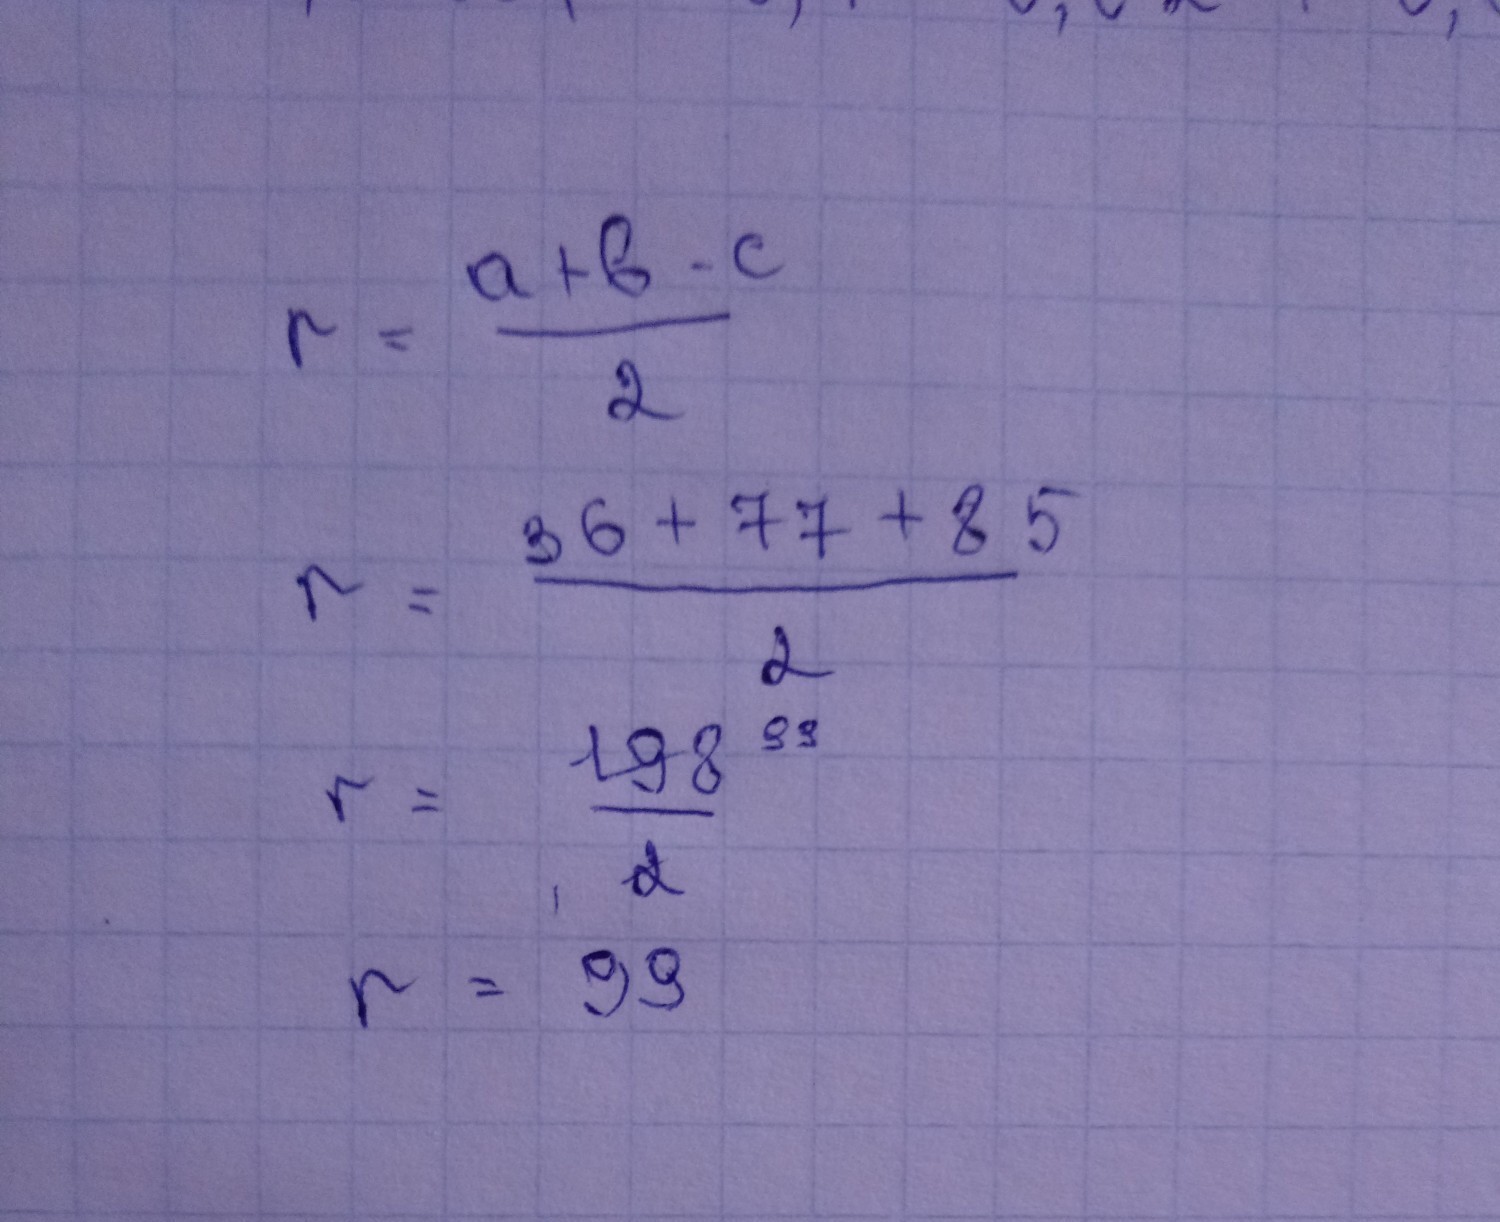 r = (a + b - c) / 2
r = (36 + 77 + 85) / 2
r = 198 99 / 2
r = 99